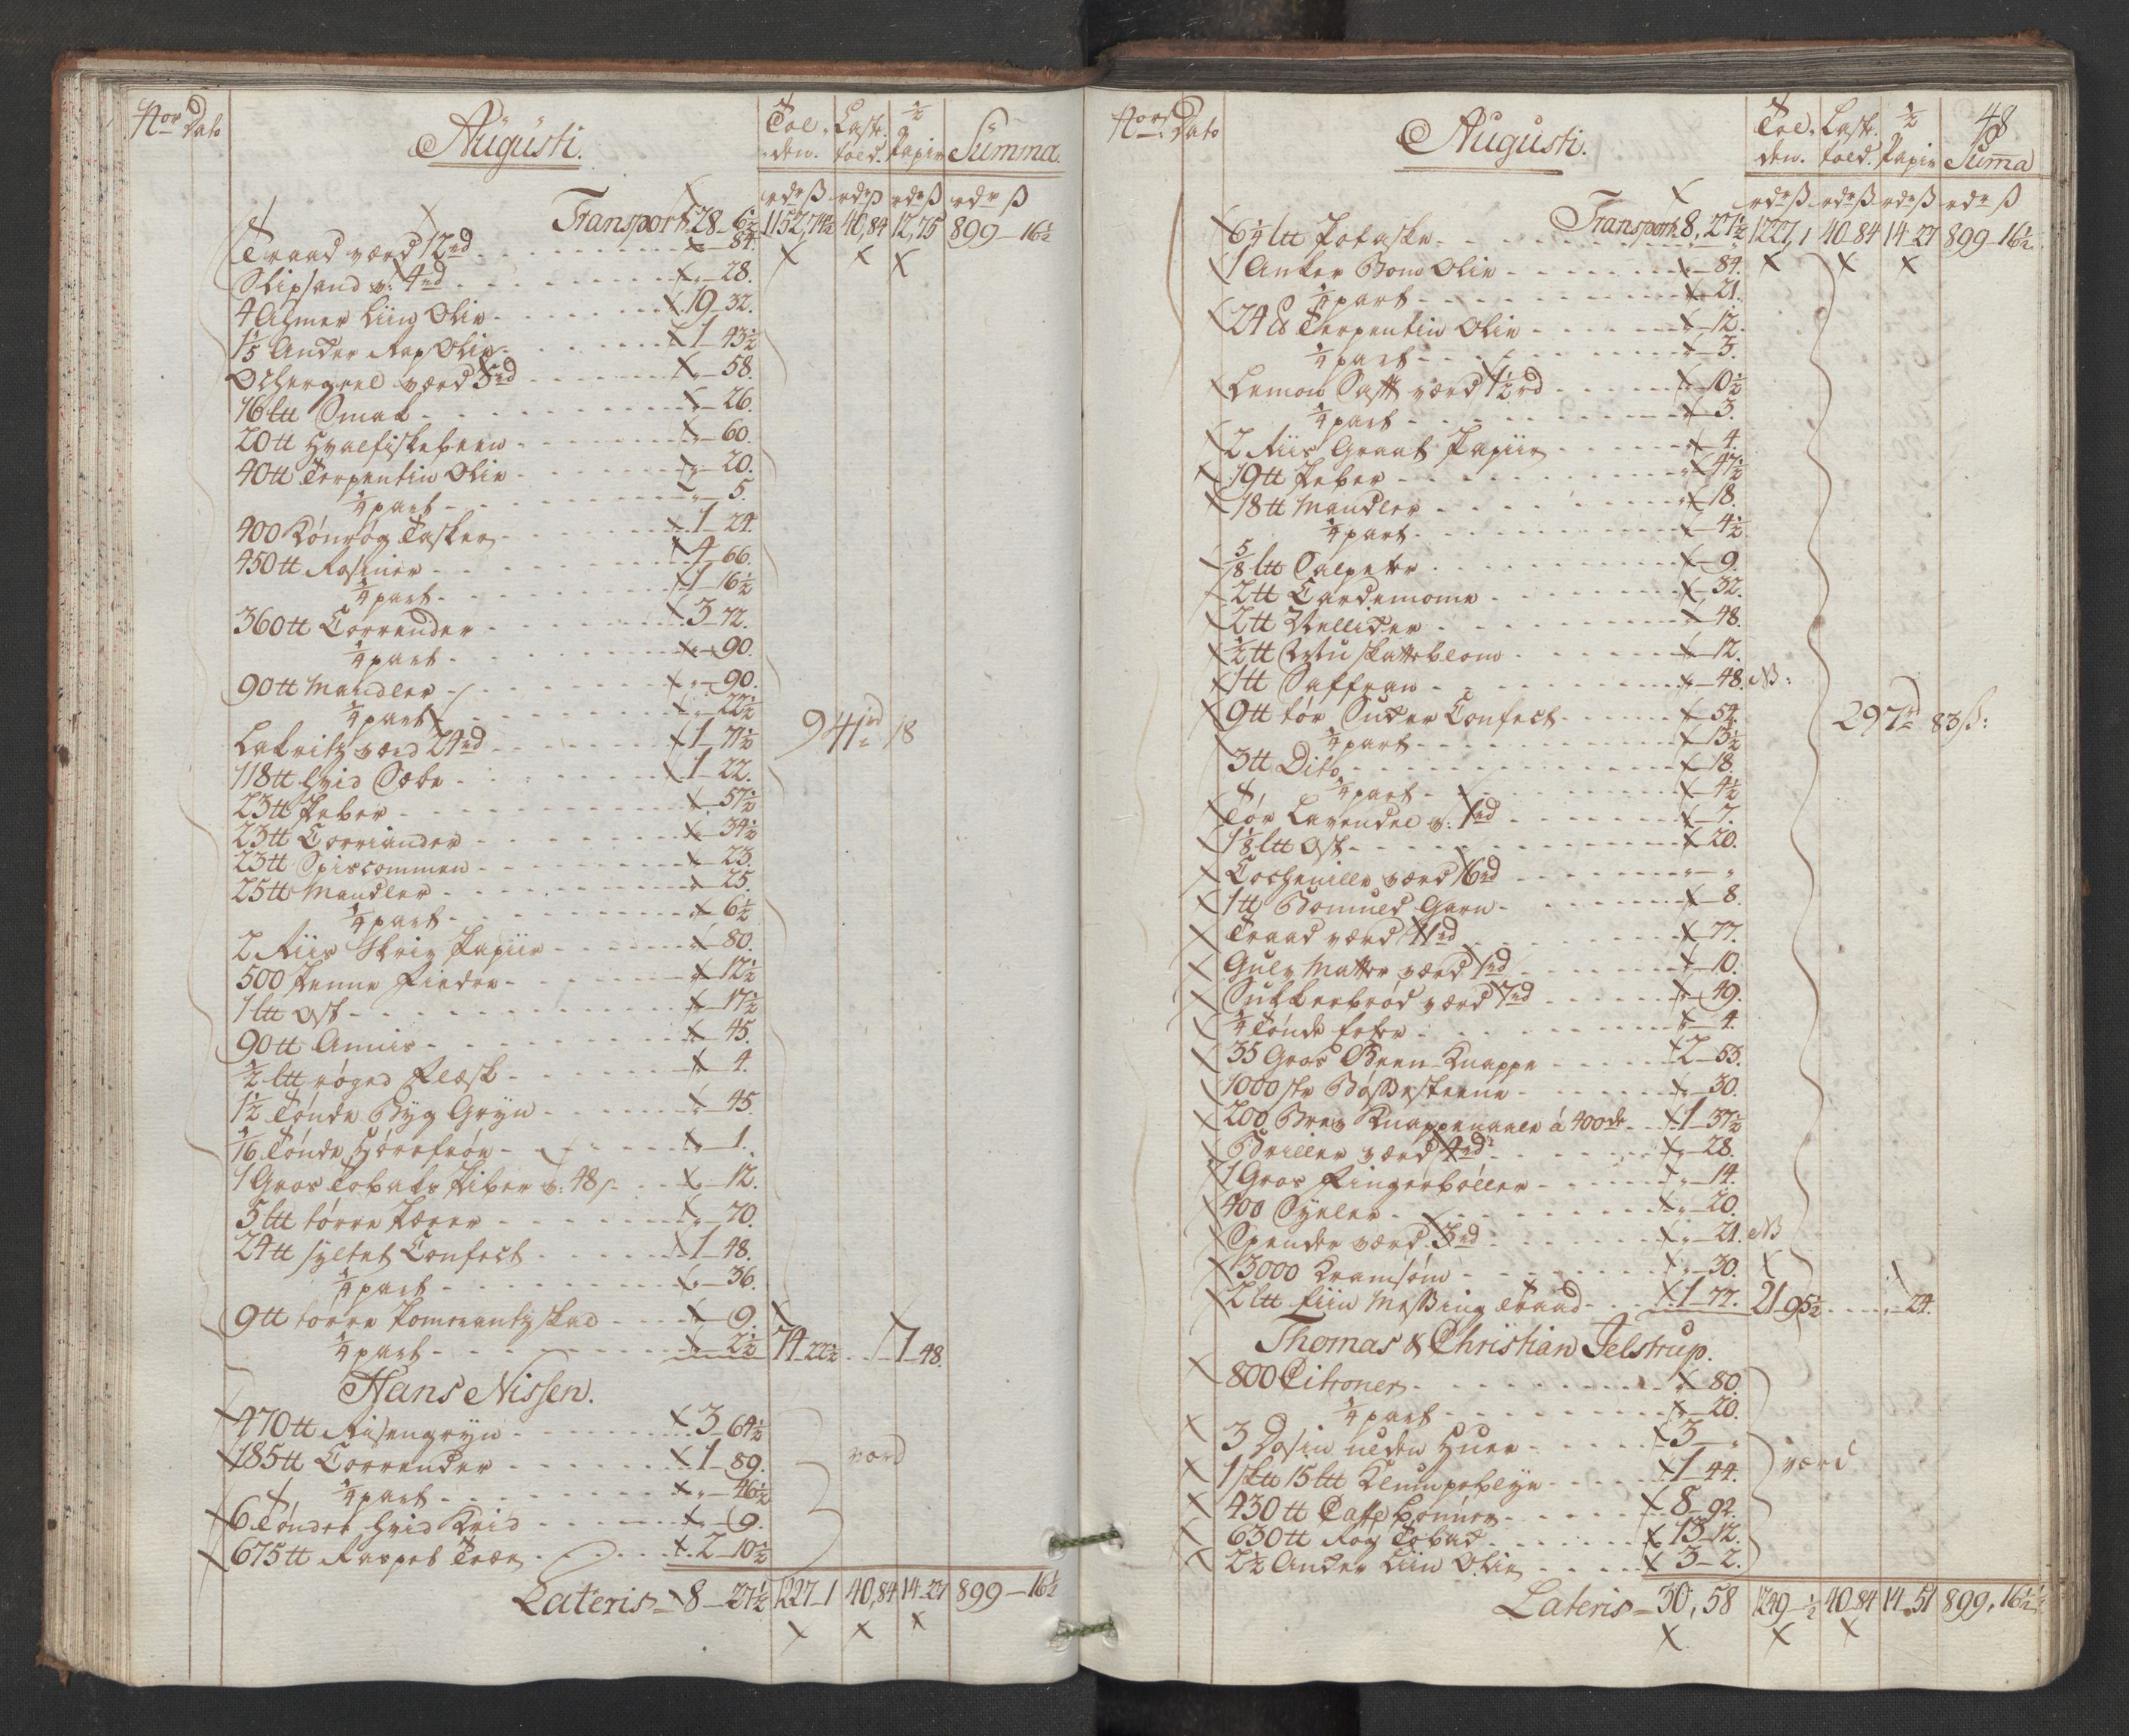 Nor Dato
Augusti.
Tol- den.
Lastr. told.
½ Papir
Summa.
rdr ß rdr ß rdr ß rdr ß
Transport 28_6½ 1152,74½ 40,84 12,75 899_16½
Traad værd 12rd _84.
Slipsand v: 4rd _28.
4 Ahmer Liin Olie 19_32.
1⅕ Ancker Rap Olie 1_43½
værd 5rd _58.
16 ltt Smak _26.
20 tt Hvalfiskebeen _60.
40 tt Terpentin Olie _20.
¼ part _5.
400 Könrøg Tasker 1_24
450 tt Rosiner 4_66.
¼ part 1_16½
360 tt Corrender 3_72.
¼ part _90.
90 tt Mandler _90.
¼ part _22½
Lakritz værd 24rd 1_71½
941rd 18
118 tt hvid Sæbe 1_22.
23 tt Peber _57½
23 tt Corriander _34½
23 tt Spiscommen _23.
25 tt Mandler _25.
¼ part _6½
2 Riis Skriv Papiir _80.
500 Penne Fiedre _12½
1 ltt Ost _17½
90 tt Anniis _45.
½ ltt røged Flæsk _4.
1½ Tønde Byg Gryn _45.
1/16 Tønde Hørefrøe _1.
1 Gros Tobaks Piber v: 48ß _12.
5 ltt tørre Pærer _70.
24 tt syltet Confect 1_48.
¼ part _36.
9 tt tørre Pomerantzskal _9.
¼ part _2½ 74_22½ 1_48.
Hans Nissen.
470 tt Risengryn 3_64½
185 tt Corrender 1_89.
værd
¼ part _46½
6 Tønder hvid Krid _9.
675 tt Raspet Træe 2_10½
Lateris 8_27½ 1227_1 40,84 14_27 899_16½
Nor Dato
Augusti.
Tol- den.
Lastr. told.
½ Papir
48
Summa
rdr ß rdr ß rdr ß rdr ß
Transport 8,27½ 1227,1 40_84 14_27 899_16½
6¼ ltt Potaske
1 Anker Bom Olie _84.
¼ part _21.
24 tt Terpentin Olie _12.
¼ part _3.
Lemon Saft værd 1½rd _10½
¼ part _3.
2 Riis Graat Papiir _4.
19 tt Peber _47½
18 tt Mandler _18.
¼ part _4½
5/8 ltt Salpeter _9.
2 tt Cardemome _32.
2 tt Nellicker _48.
½ tt Muskatteblom _12.
1 tt Saffran _48. NB:
9 tt tør Sucker Confect _54.
297rd 83ß:
¼ part _13½
3 tt Dito _18.
¼ part _4½
Tør Lavendel v: 1rd _7.
1⅛ ltt Ost _20.
Cochenille værd 16rd _ "
1 tt Bomuld Garn _8.
Traad værd 11rd _77.
Gulv Matter værd 1rd _10.
Sukkerbrød værd 7rd _49.
¼ Tønde _4.
35 Gros Been Knappe 2_53.
1000 stk Bøssesteene _30.
200 Brev Knappenaale á 400de 1_37½
Briller værd 4rd _28.
1 Gros Fingerbøller _14.
400 Syeler _20.
Spender værd 3rd _21. NB
3000 Kramsøm _30.
2 ltt fiin Messing Traad 1_77. 21_95½ _24.
Thomas & Christian Jelstrup.
800 Citroner _80.
¼ part _20.
3 Dosin ulden Huer 3_"
værd
1 sktt 15 ltt Klumpeblye 1_44.
430 tt Caffe bønner 8_92.
630 tt Røg Tobak 13_12.
2½ Ancker Liin Olie 3_2.
Lateris 30,58 1249_½ 40_84 14_51 899,16½